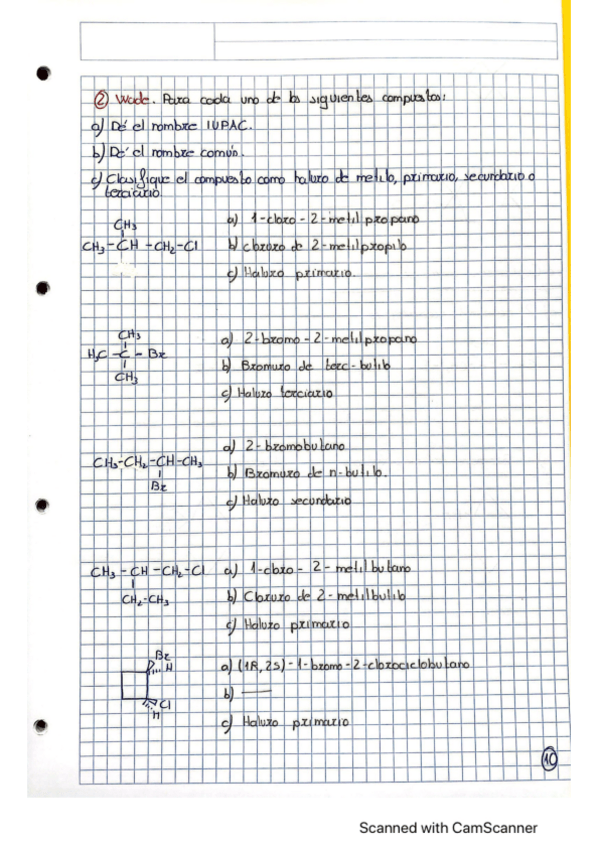 ② Wade. Para cada uno de los siguientes compuestos:
a) Dé el nombre IUPAC.
b) Dé el nombre común.
c) Clasifique el compuesto como haluro de metilo, primario, secundario o
terciario
CH3
CH3-CH-CH2-Cl
a) 1-cloro-2-metilpropano
b) cloruro de 2-metilpropilo
c) Haluro primario.
CH3
H3C-C-Br
CH3
a) 2-bromo-2-metilpropano
b) Bromuro de terc-butilo
c) Haluro terciario
CH3-CH2-CH-CH3
Br
a) 2-bromobutano
b) Bromuro de n-butilo.
c) Haluro secundario
CH3-CH-CH2-Cl
CH2-CH3
a) 1-cloro-2-metilbutano
b) Cloruro de 2-metilbutilo
c) Haluro primario
Br
H
Cl
H
a) (1R, 2S)-1-bromo-2-clorociclobutano
b) —
c) Haluro primario
10
Scanned with CamScanner